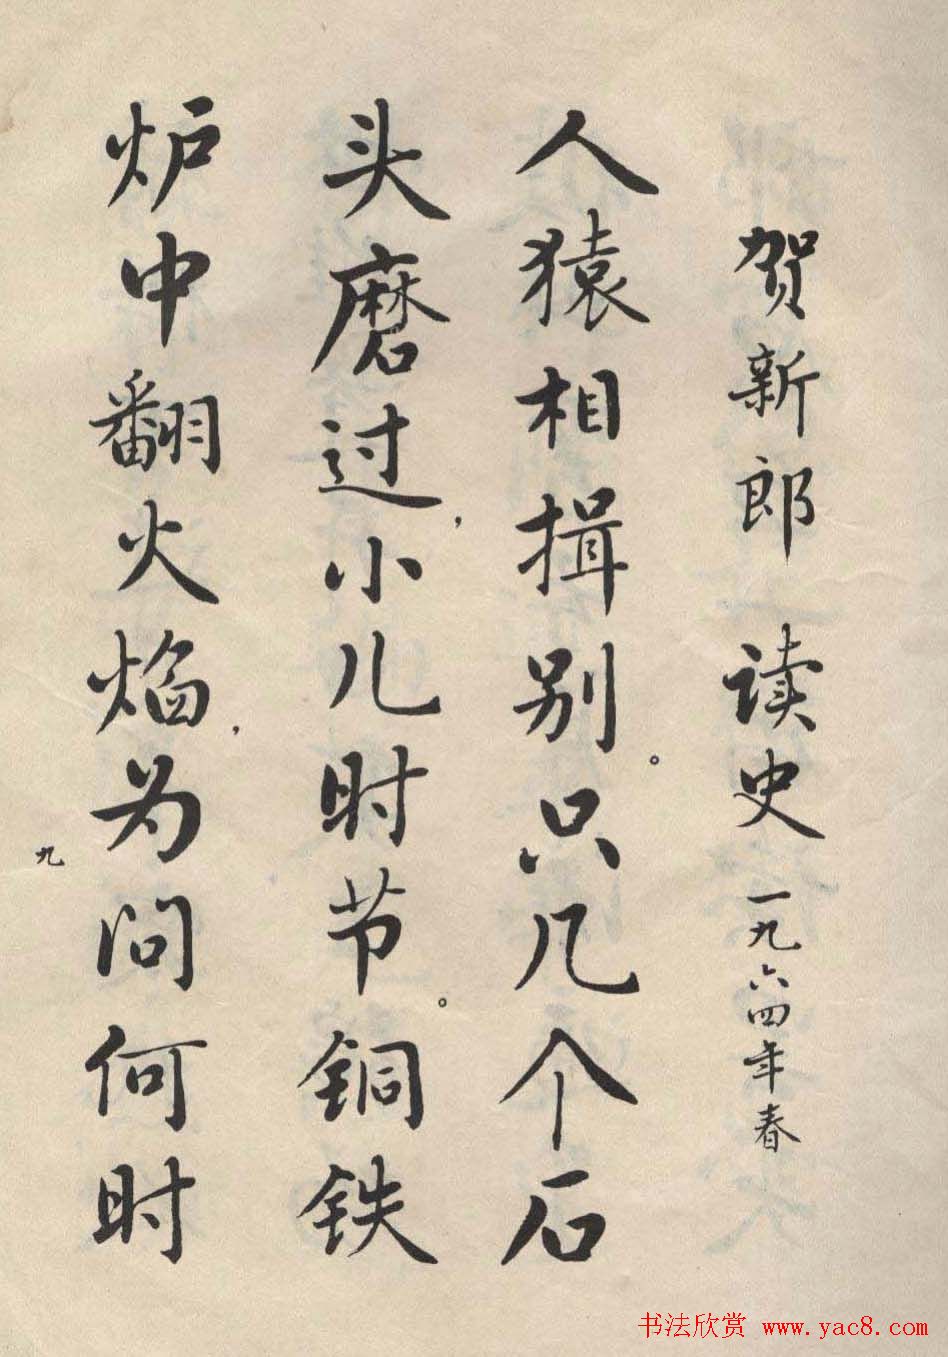 贺新郎 读史 一九六四年春
人猿相揖别。只几个石
头磨过，小儿时节。铜铁
炉中翻火焰，为问何时
九
书法欣赏 www.yac8.com